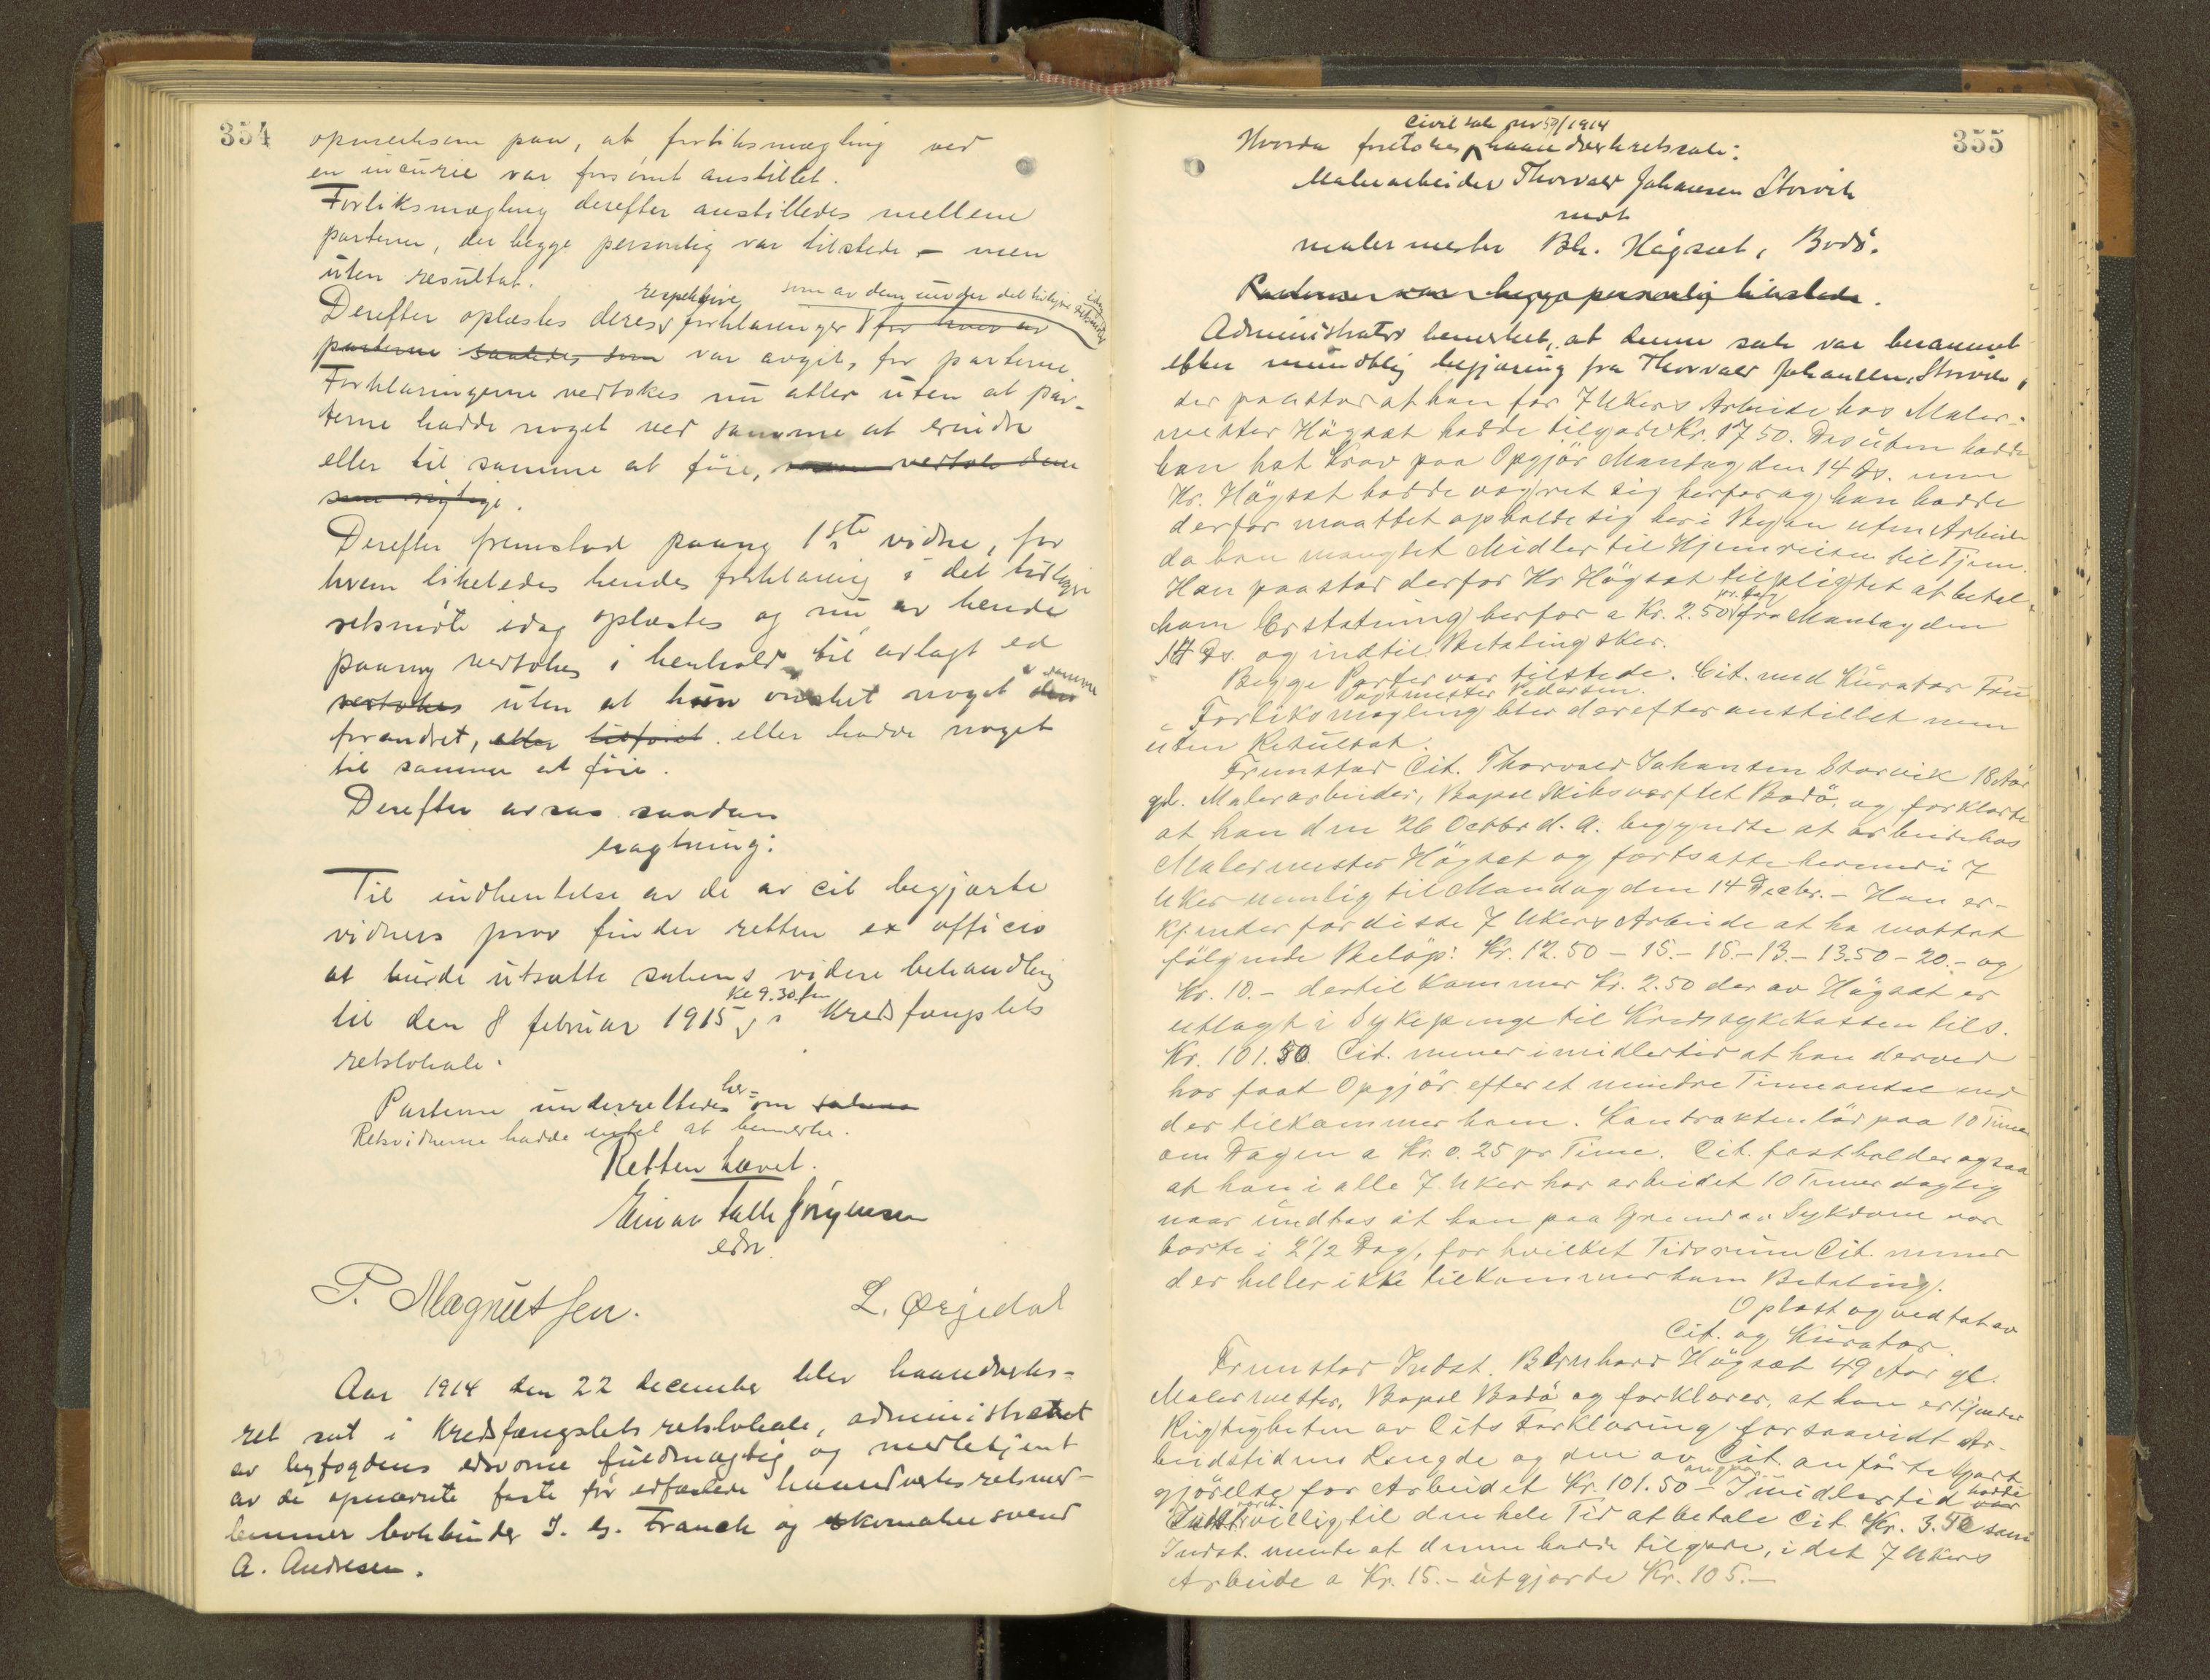 354
opmerksom paa, at forliksmægling ved
en incurie var forsömt anstillet.
Forliksmægling derefter anstilledes mellem
parterne, der begge personlig var tilstede – men
uten resultat.
respektive som av dem under det tidligere retsmöte idag
Derefter oplæstes deres forklaringer for hver av
parterne saaledes som var avgit, for parterne
Forklaringerne vedtokes nu atter uten at par-
terne hadde noget ved samme at erindre
eller til samme at föie, som vedtok dem
som rigtige.
Derefter fremstod paany 1ste vidne, for
hvem likeledes hendes forklaring i det tidligere
retsmöte idag oplæstes og nu av hende
paany vedtokes i henhold til avlagt ed
vedtokes uten at hun önsket noget i samme den
forandret, eller tilföiet eller hadde noget
til samme at föie.
Derefter avsas saadan
eragtning:
Til indhentelse av de av cit begjærte
vidners prov finder retten ex officio
at burde utsætte sakens videre behandling
kl 9.30 fm
til den 8 februar 1915 i Kredsfængslets
retslokale.
Parterne underrettedes her- om sakens
Retsvidnerne hadde intet at bemerke.
Retten hævet.
Einar Falk Jörgensen
edsv.
P. Magnussen. L. Ørjedal
Aar 1914 den 22 december blev haandverks-
ret sat i Kredsfængslets retslokale, administreret
av byfogdens edsvorne fuldmægtig og medbetjent
av de opnævnte faste för edfæstede haandverksretsmed-
lemmer bokbinder J. G. Franck og skomakersvend
A. Andresen.
355
Civil sak nr 57/1914
Hvorda foretokes haandverksretssak:
Malerarbeider Thorvald Johansen Storvik
mot
malermester Bh. Högsæt, Bodö.
Parterne var begge personlig tilstede.
Administrator bemerket, at denne sak var berammet
efter mundtlig begjæring fra Thorvald Johansen Storvik,
der paastod at han for 7 Ukers Arbeide hos Maler-
mester Högsæt hadde tilgode Kr. 17 50. Desuten hadde
han hat Krav paa Opgjör Mandag den 14 ds. men
Hr. Högsæt hadde vægret sig herfor og han hadde
derfor maattet opholde sig her i Byen uten Arbeide
da han manglet Midler til Hjemreisen til Tjem.
Han paastod derfor Hr Högsæt tilpligtet at betale
ham Erstatning herfor a Kr. 2.50 pr. dag fra Mandag den
14 Ds. og indtil Betaling sker.
Begge Parter var tilstede. Cit. med Kurator Fru
Vagtmester Pedersen.
Forliksmægling blev derefter anstillet men
uten Resultat.
Fremstod Cit. Thorvald Johansen Storvik 18 Aar
gl. Malerarbeider, Bopæl Skibsværftet Bodö, og forklarte
at han den 26 Octbr d. A. begyndte at arbeide hos
Malermester Högsæt og fortsatte hermed i 7
Uker nemlig til Mandag den 14 Decbr. – Han er-
kjender for disse 7 Ukers Arbeide at ha mottat
fölgende Belöp: Kr. 12.50 – 15.– 15.– 13.– 13.50 – 20.– og
Kr. 10.– dertil kommer Kr. 2.50 der av Högsæt er
utlagt i Sykepenge til Kredssykekassen tils.
Kr. 101.50. Cit. mener imidlertid at han derved
har faat Opgjör efter et mindre Timeantal end
der tilkommer ham. Kontrakten löd paa 10 Timer
om Dagen a Kr. 0.25 pr Time. Cit. fastholder ogsaa
at han i alle 7 Uker har arbeidet 10 Timer daglig
naar undtas at han paa Grund av Sykdom var
borte i 2 1/2 Dag, for hvilket Tidsrum Cit. mener
der heller ikke tilkommer ham Betaling.
Oplæst og vedtat av
Cit. og Kurator.
Fremstod Indst. Bernhard Högsæt 49 Aar gl.
Malermester, Bopæl Bodö og forklarer, at han erkjender
Rigtigheten av Cits Forklaring forsaavidt Ar-
beidstidens Længde og den av Cit. anförte Godt-
gjörelse for Arbeidet Kr. 101.50 angaar – Imidlertid hadde var
Indst. været villig til den hele Tid at betale Cit. Kr. 3.50 som
Indst. mente at denne hadde tilgode, idet 7 Ukers
Arbeide a Kr. 15.– utgjorde Kr. 105.–